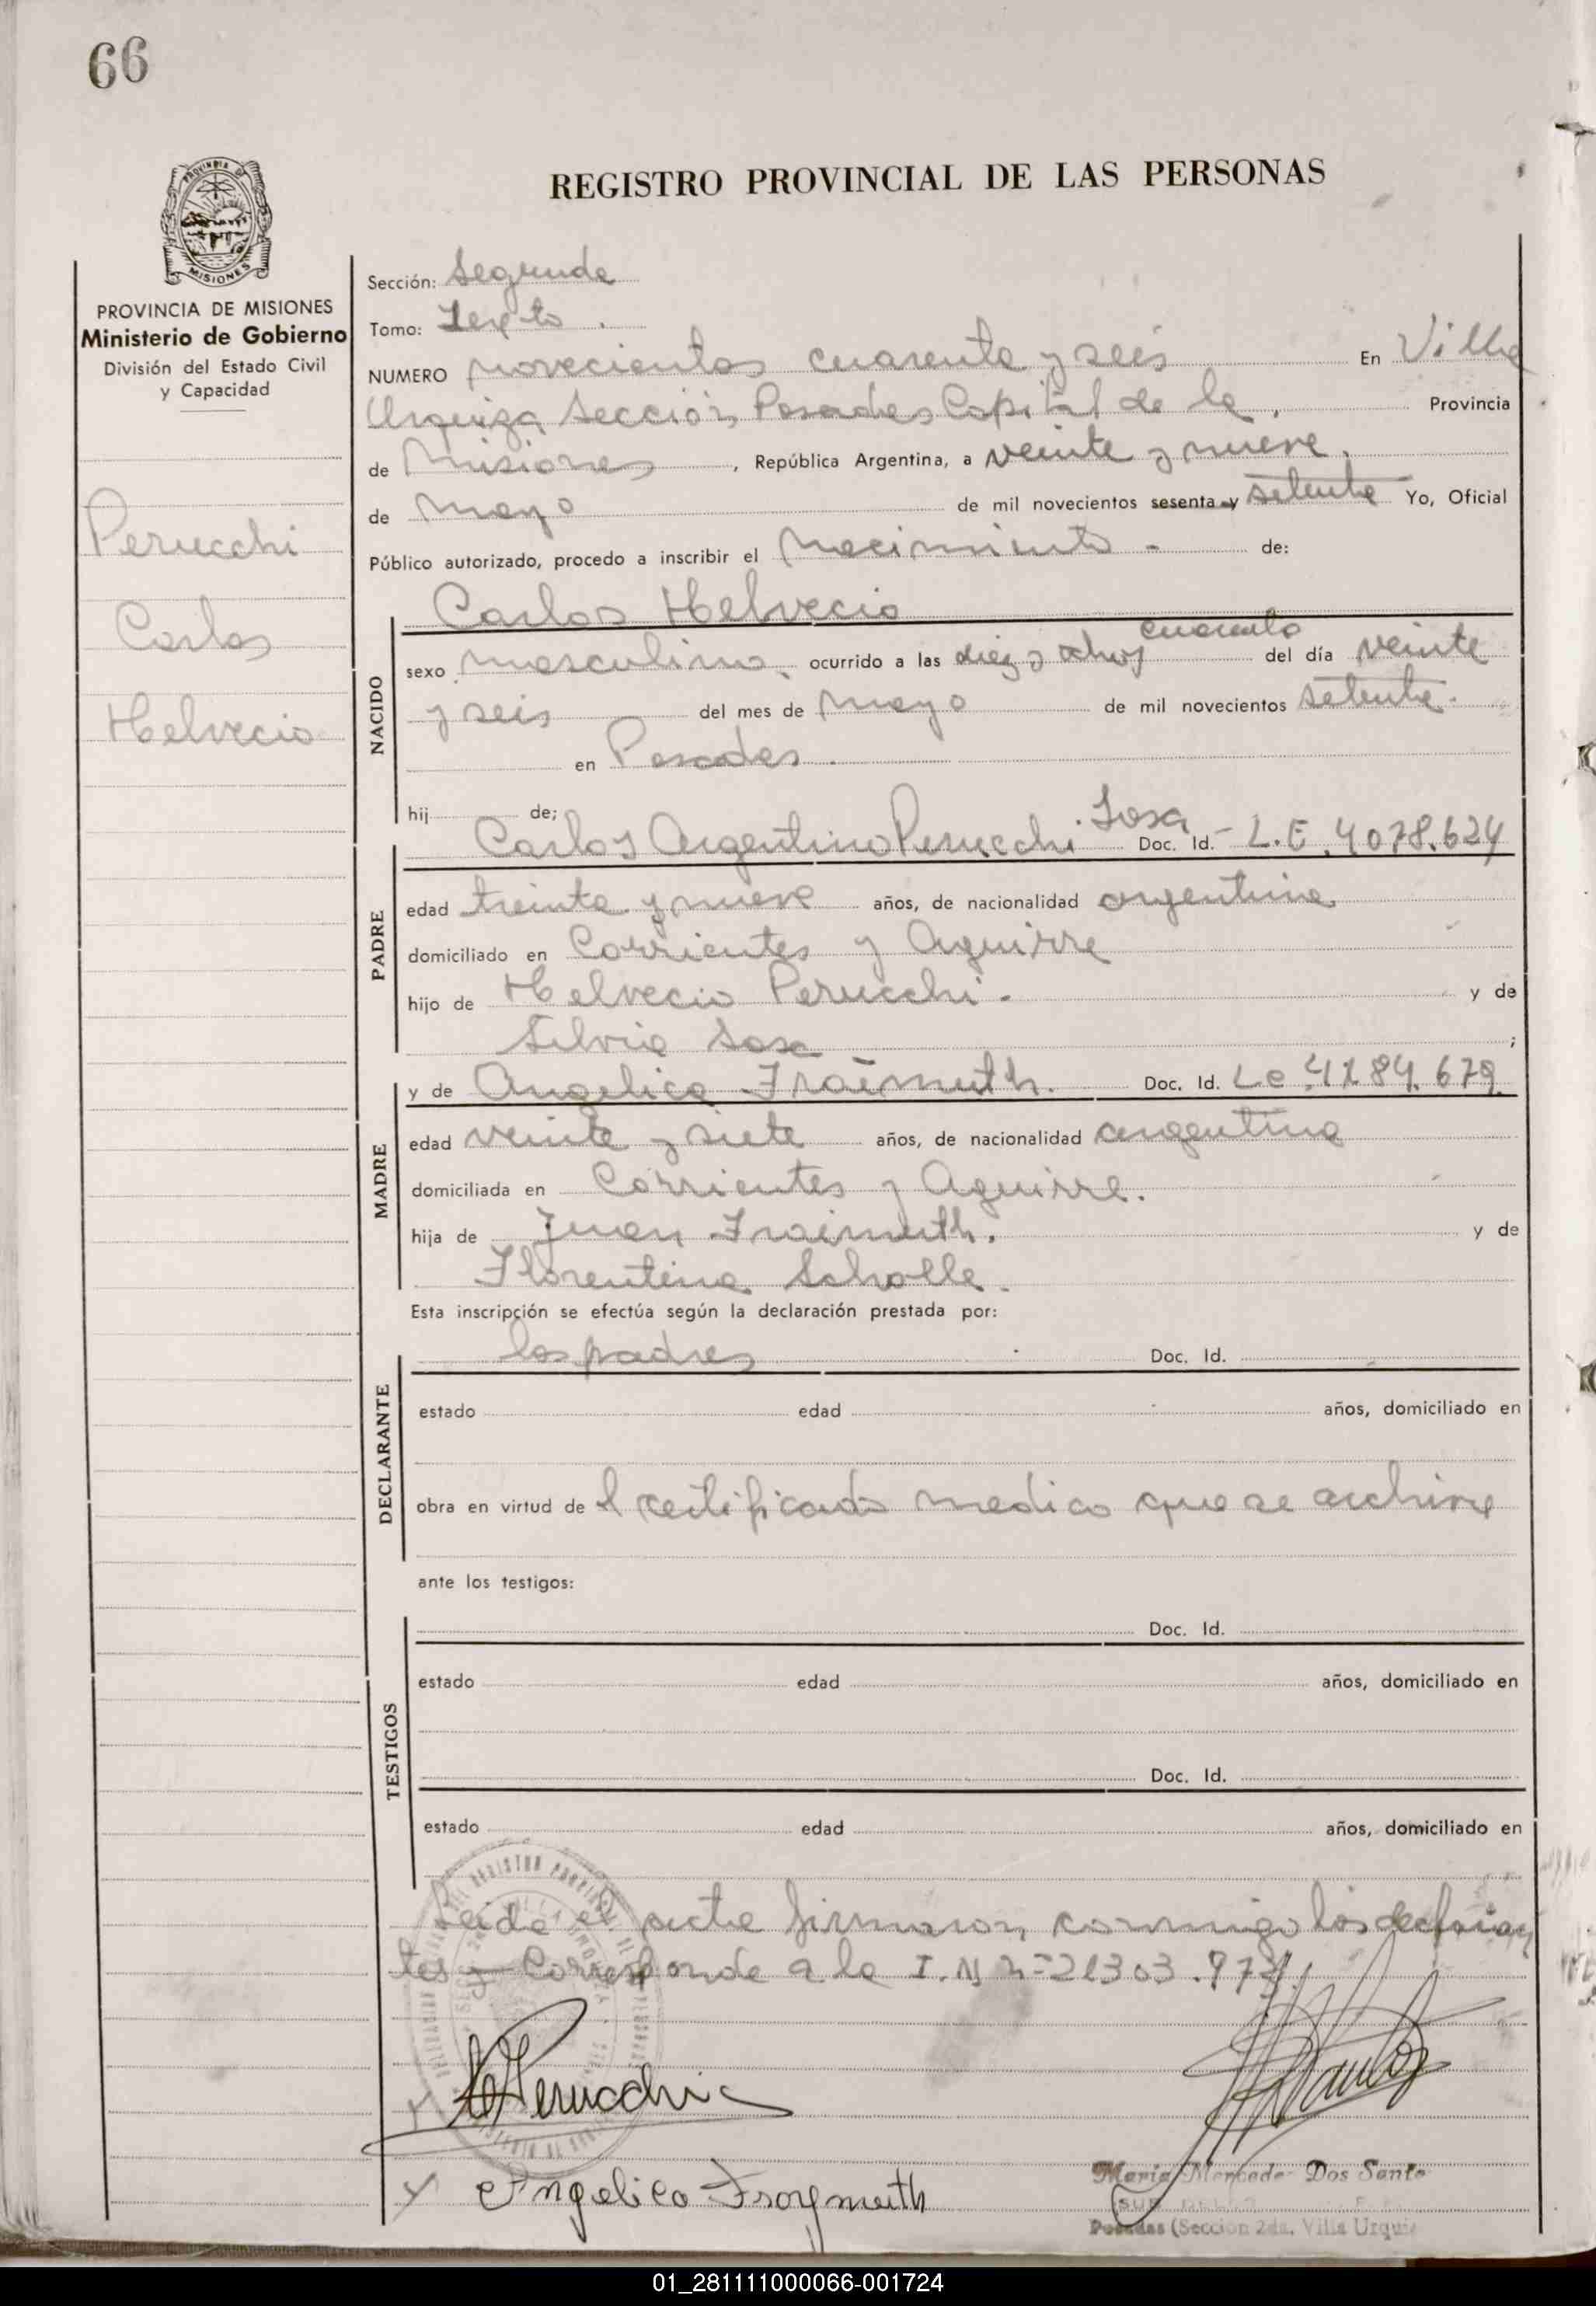 66
REGISTRO PROVINCIAL DE LAS PERSONAS
PROVINCIA DE MISIONES
Ministerio de Gobierno
División del Estado Civil
y Capacidad
Perucchi
Carlos
Helvecio
Sección: Segunda
Tomo: Sexto.
NUMERO novecientos cuarenta y seis En Villa
Urquiza Sección Posadas Capital de la, Provincia
de Misiones, República Argentina, a veinte y nueve.
de mayo de mil novecientos sesenta y setenta Yo, Oficial
Público autorizado, procedo a inscribir el Nacimiento - de:
Carlos Helvecio
NACIDO
cuarenta
sexo masculino, ocurrido a las diez y ocho y del día veinte
y seis del mes de mayo de mil novecientos setenta.
en Posadas.
hij de;
Sosa
Carlos Argentino Perucchi Doc. Id. - L.E. 4078.624
PADRE
edad treinta y nueve años, de nacionalidad argentina
domiciliado en Corrientes y Aguirre
hijo de Helvecio Perucchi. y de
Silvia Sosa ;
y de Angelica Fraimuth. Doc. Id. Lc 4184.679
MADRE
edad veinte y siete años, de nacionalidad argentina
domiciliada en Corrientes y Aguirre.
hija de Juan Fraimuth. y de
Florentina Scholle.
Esta inscripción se efectúa según la declaración prestada por:
los padres Doc. Id.
DECLARANTE
estado edad años, domiciliado en
obra en virtud de l certificado medico que se archiva
ante los testigos:
TESTIGOS
Doc. Id.
estado edad años, domiciliado en
Doc. Id.
estado edad años, domiciliado en
Leida el acta firmaron conmigo los declaran
tes y Corresponde a la I.N n=21303.973
Perucchi
Angelica Froymuth
Maria Mercede Dos Santo
Posadas (Sección 2da. Villa Urqui
01_281111000066-001724